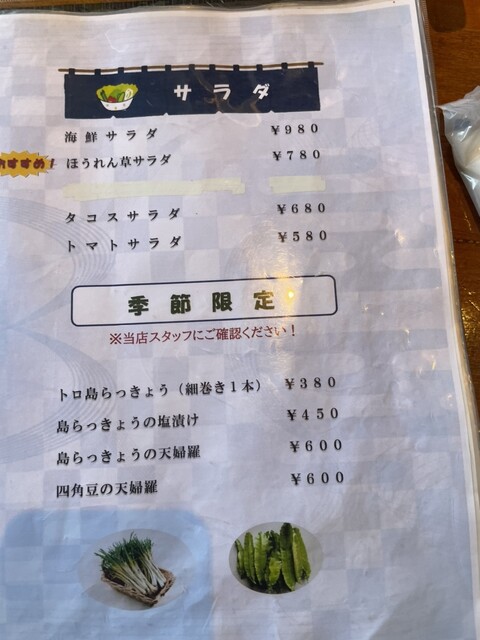 サラダ
海鮮サラダ ￥980
おすすめ! ほうれん草サラダ ￥780
タコスサラダ ￥680
トマトサラダ ￥580
季節限定
※当店スタッフにご確認ください！
トロ島らっきょう（細巻き１本） ￥380
島らっきょうの塩漬け ￥450
島らっきょうの天婦羅 ￥600
四角豆の天婦羅 ￥600